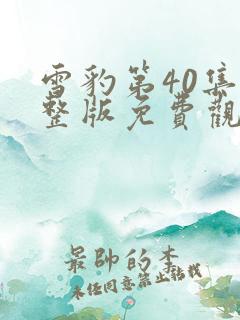 雪豹第40集
整版免費觀
最帥的李
未经同意禁止转载